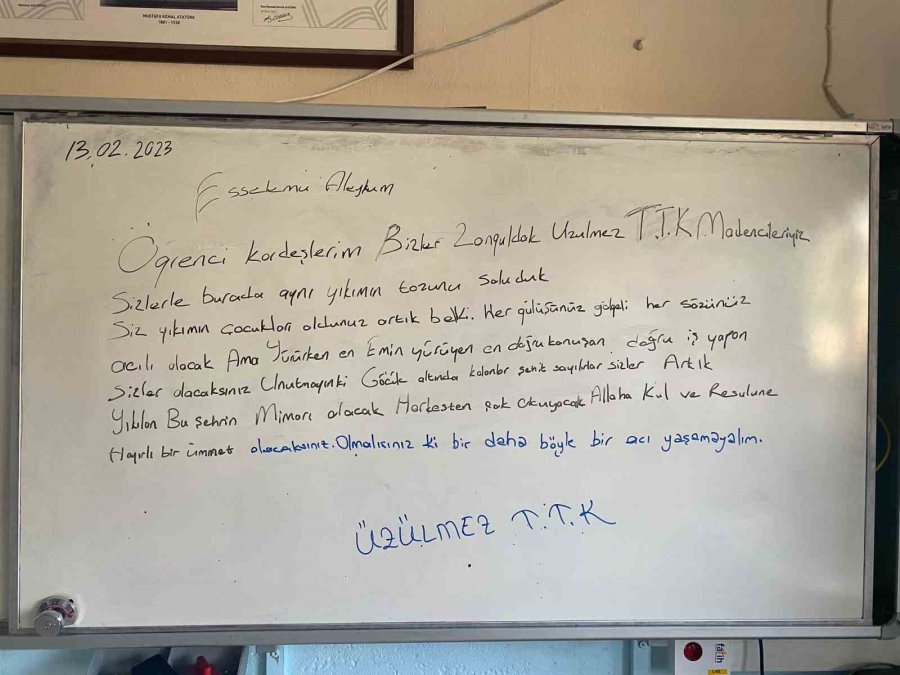 MUSTAFA KEMAL ATATÜRK
1881 - 1938
13.02.2023
Esselemü Aleykum
Öğrenci kardeşlerim Bizler Zonguldak Uzulmez T.T.K Madencileriyiz
Sizlerle burada aynı yıkımın tozunu soluduk
Siz yıkımın çocukları oldunuz artık belki. Her gülüşünüz gölgeli her sözünüz
acılı olacak Ama Yürürken en Emin yürüyen en doğru konuşan doğru iş yapan
Sizler olacaksınız Unutmayınki Göçük altında kalanlar şehit sayılırlar sizler Artık
Yıkılan Bu şehrin Mimarı olacak Herkesten çok okuyacak Allaha Kul ve Resulune
Hayırlı bir ümmet olacaksınız. Olmalısınız ki bir daha böyle bir acı yaşamayalım.
ÜZÜLMEZ T.T.K
fatih